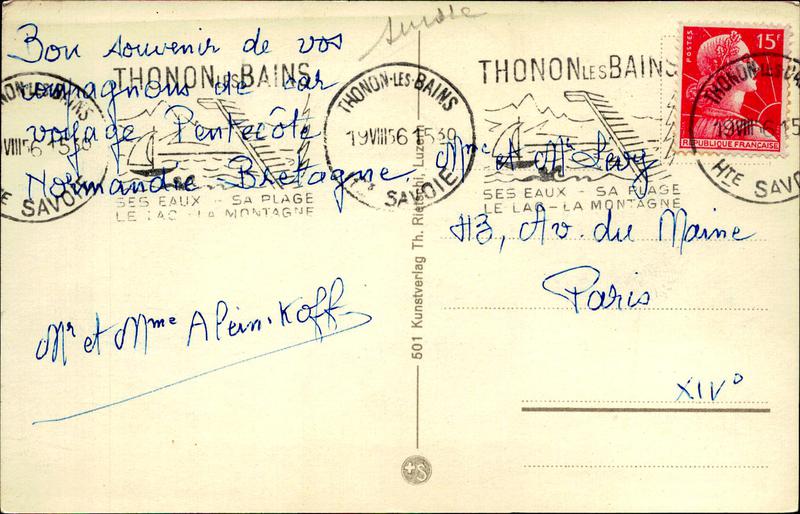 Suisse
Bon souvenir de vos
compagnons de car
voyage Pentecôte
Normandie Bretagne.
Mr et Mme Alpin-Koff
THONON LES BAINS
SES EAUX - SA PLAGE
LE LAC - LA MONTAGNE
THONON-LES-BAINS
19 VIII 56 1530
HTE SAVOIE
THONON LES BAINS
SES EAUX - SA PLAGE
LE LAC - LA MONTAGNE
POSTES
15F
REPUBLIQUE FRANCAISE
THONON-LES-BAINS
19 VIII 56 15
HTE SAVOIE
501 Kunstverlag Th. Rietschi, Luzern
Mme et Mr Levy
113, Av. du Maine
Paris
XIVo